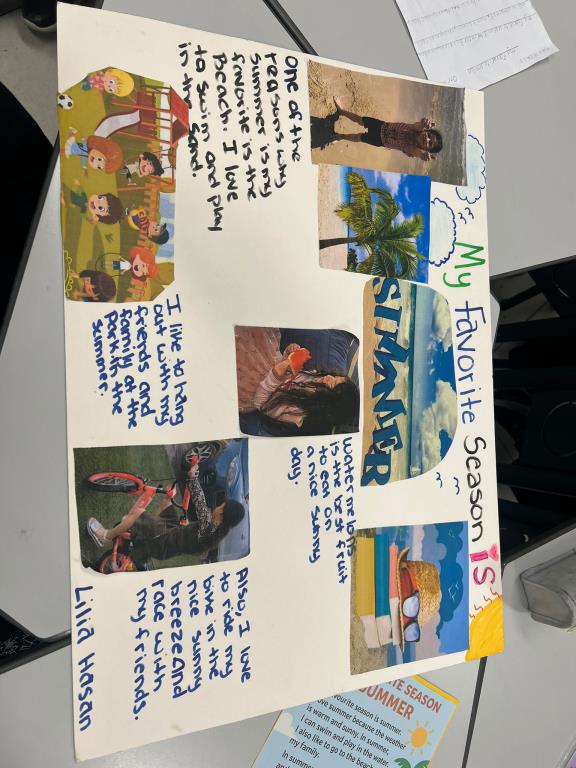 My Favorite Season IS
SUMMER
One of the
reasons why
Summer is my
favorite is the
Beach. I love
to swim and play
in the sand.
I like to hang
out with my
friends and
family at the
Park in the
summer.
water melons
is the best fruit
to eat on
a nice sunny
day.
Also I love
to ride my
bike in the
nice sunny
breeze and
race with
my friends.
Lilia Hasan
SEASON
SUMMER
season is summer.
summer because the weather
is warm and sunny. In summer,
I can swim and play in the water.
I also like to go to the beach
my family.
In summer